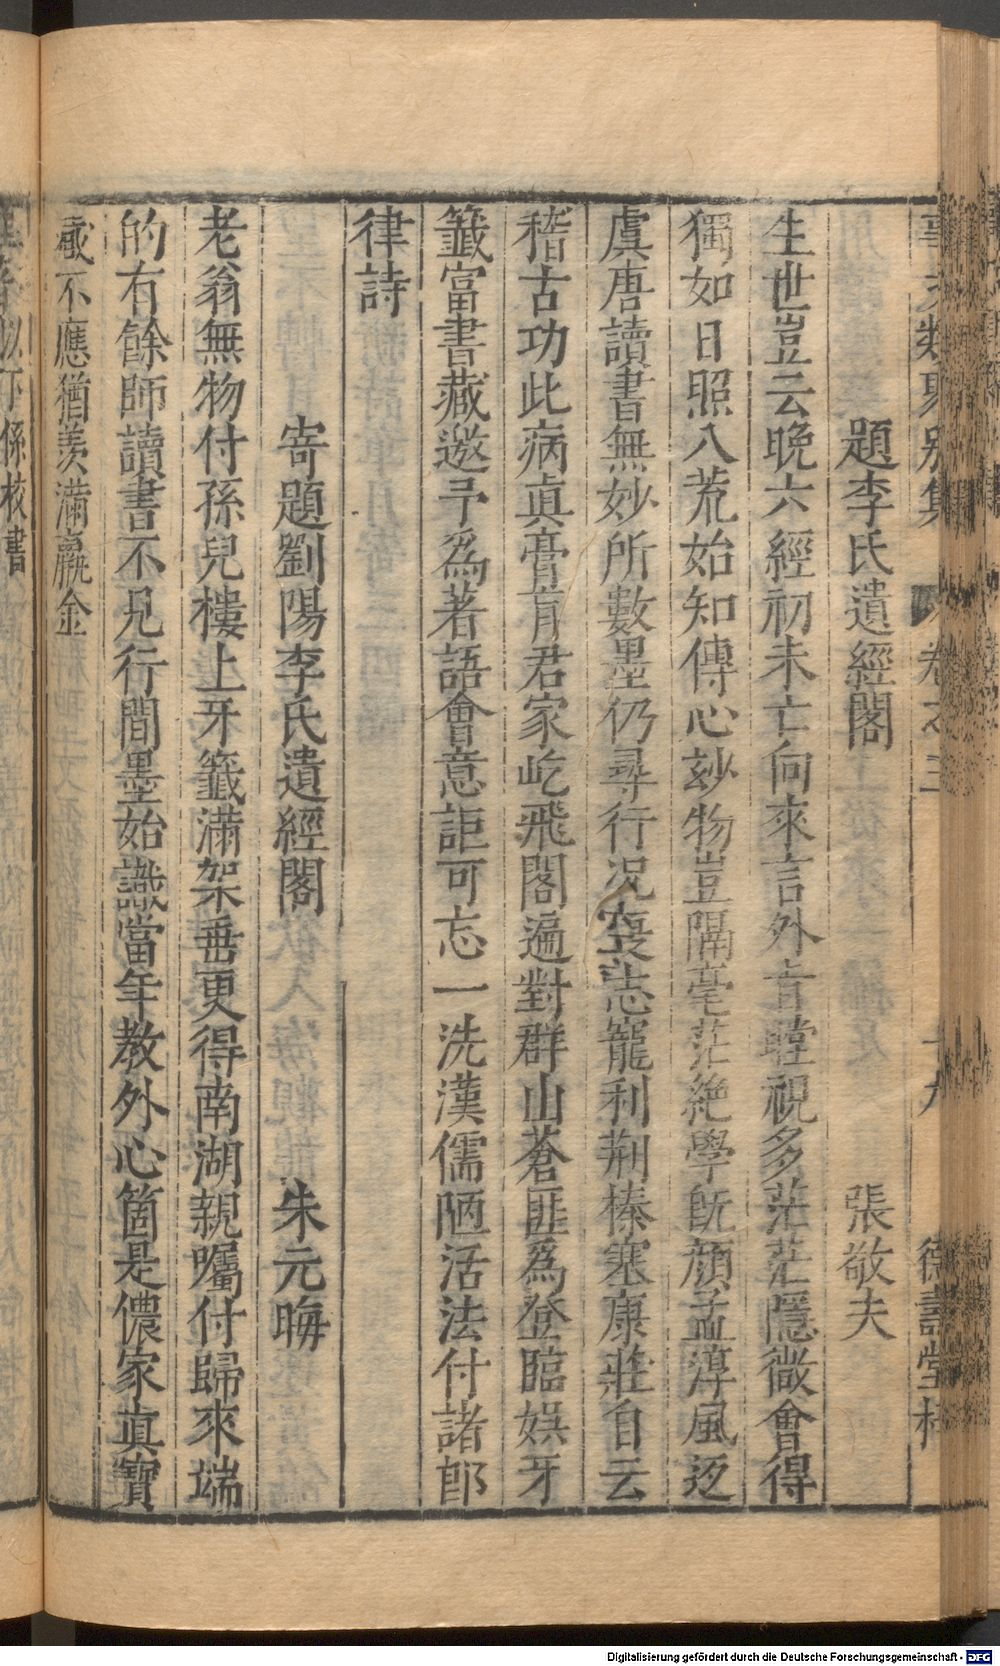 事文類聚別集 卷之三 十九 德壽堂梓
題李氏遺經閣 張敬夫
生世豈云晚六經初未亡向來言外旨瞠視多茫茫隱微會得
獨如日照八荒始知傳心玅物豈隔毫茫絶學旣顔孟淳風返
虞唐讀書無妙所數墨仍尋行况喪志寵利荆榛塞康莊自云
稽古功此病眞膏肓君家屹飛閣遍對群山蒼匪爲登臨娯牙
籤富書藏邀予爲著語會意詎可忘一洗漢儒陋活法付諸郎
律詩
寄題劉陽李氏遺經閣 朱元晦
老翁無物付孫兒樓上牙籤滿架垂更得南湖親囑付歸來端
的有餘師讀書不見行間墨始識當年教外心箇是儂家眞寶
藏不應猶羨滿籯金
以下係校書
Digitalisierung gefördert durch die Deutsche Forschungsgemeinschaft - DFG